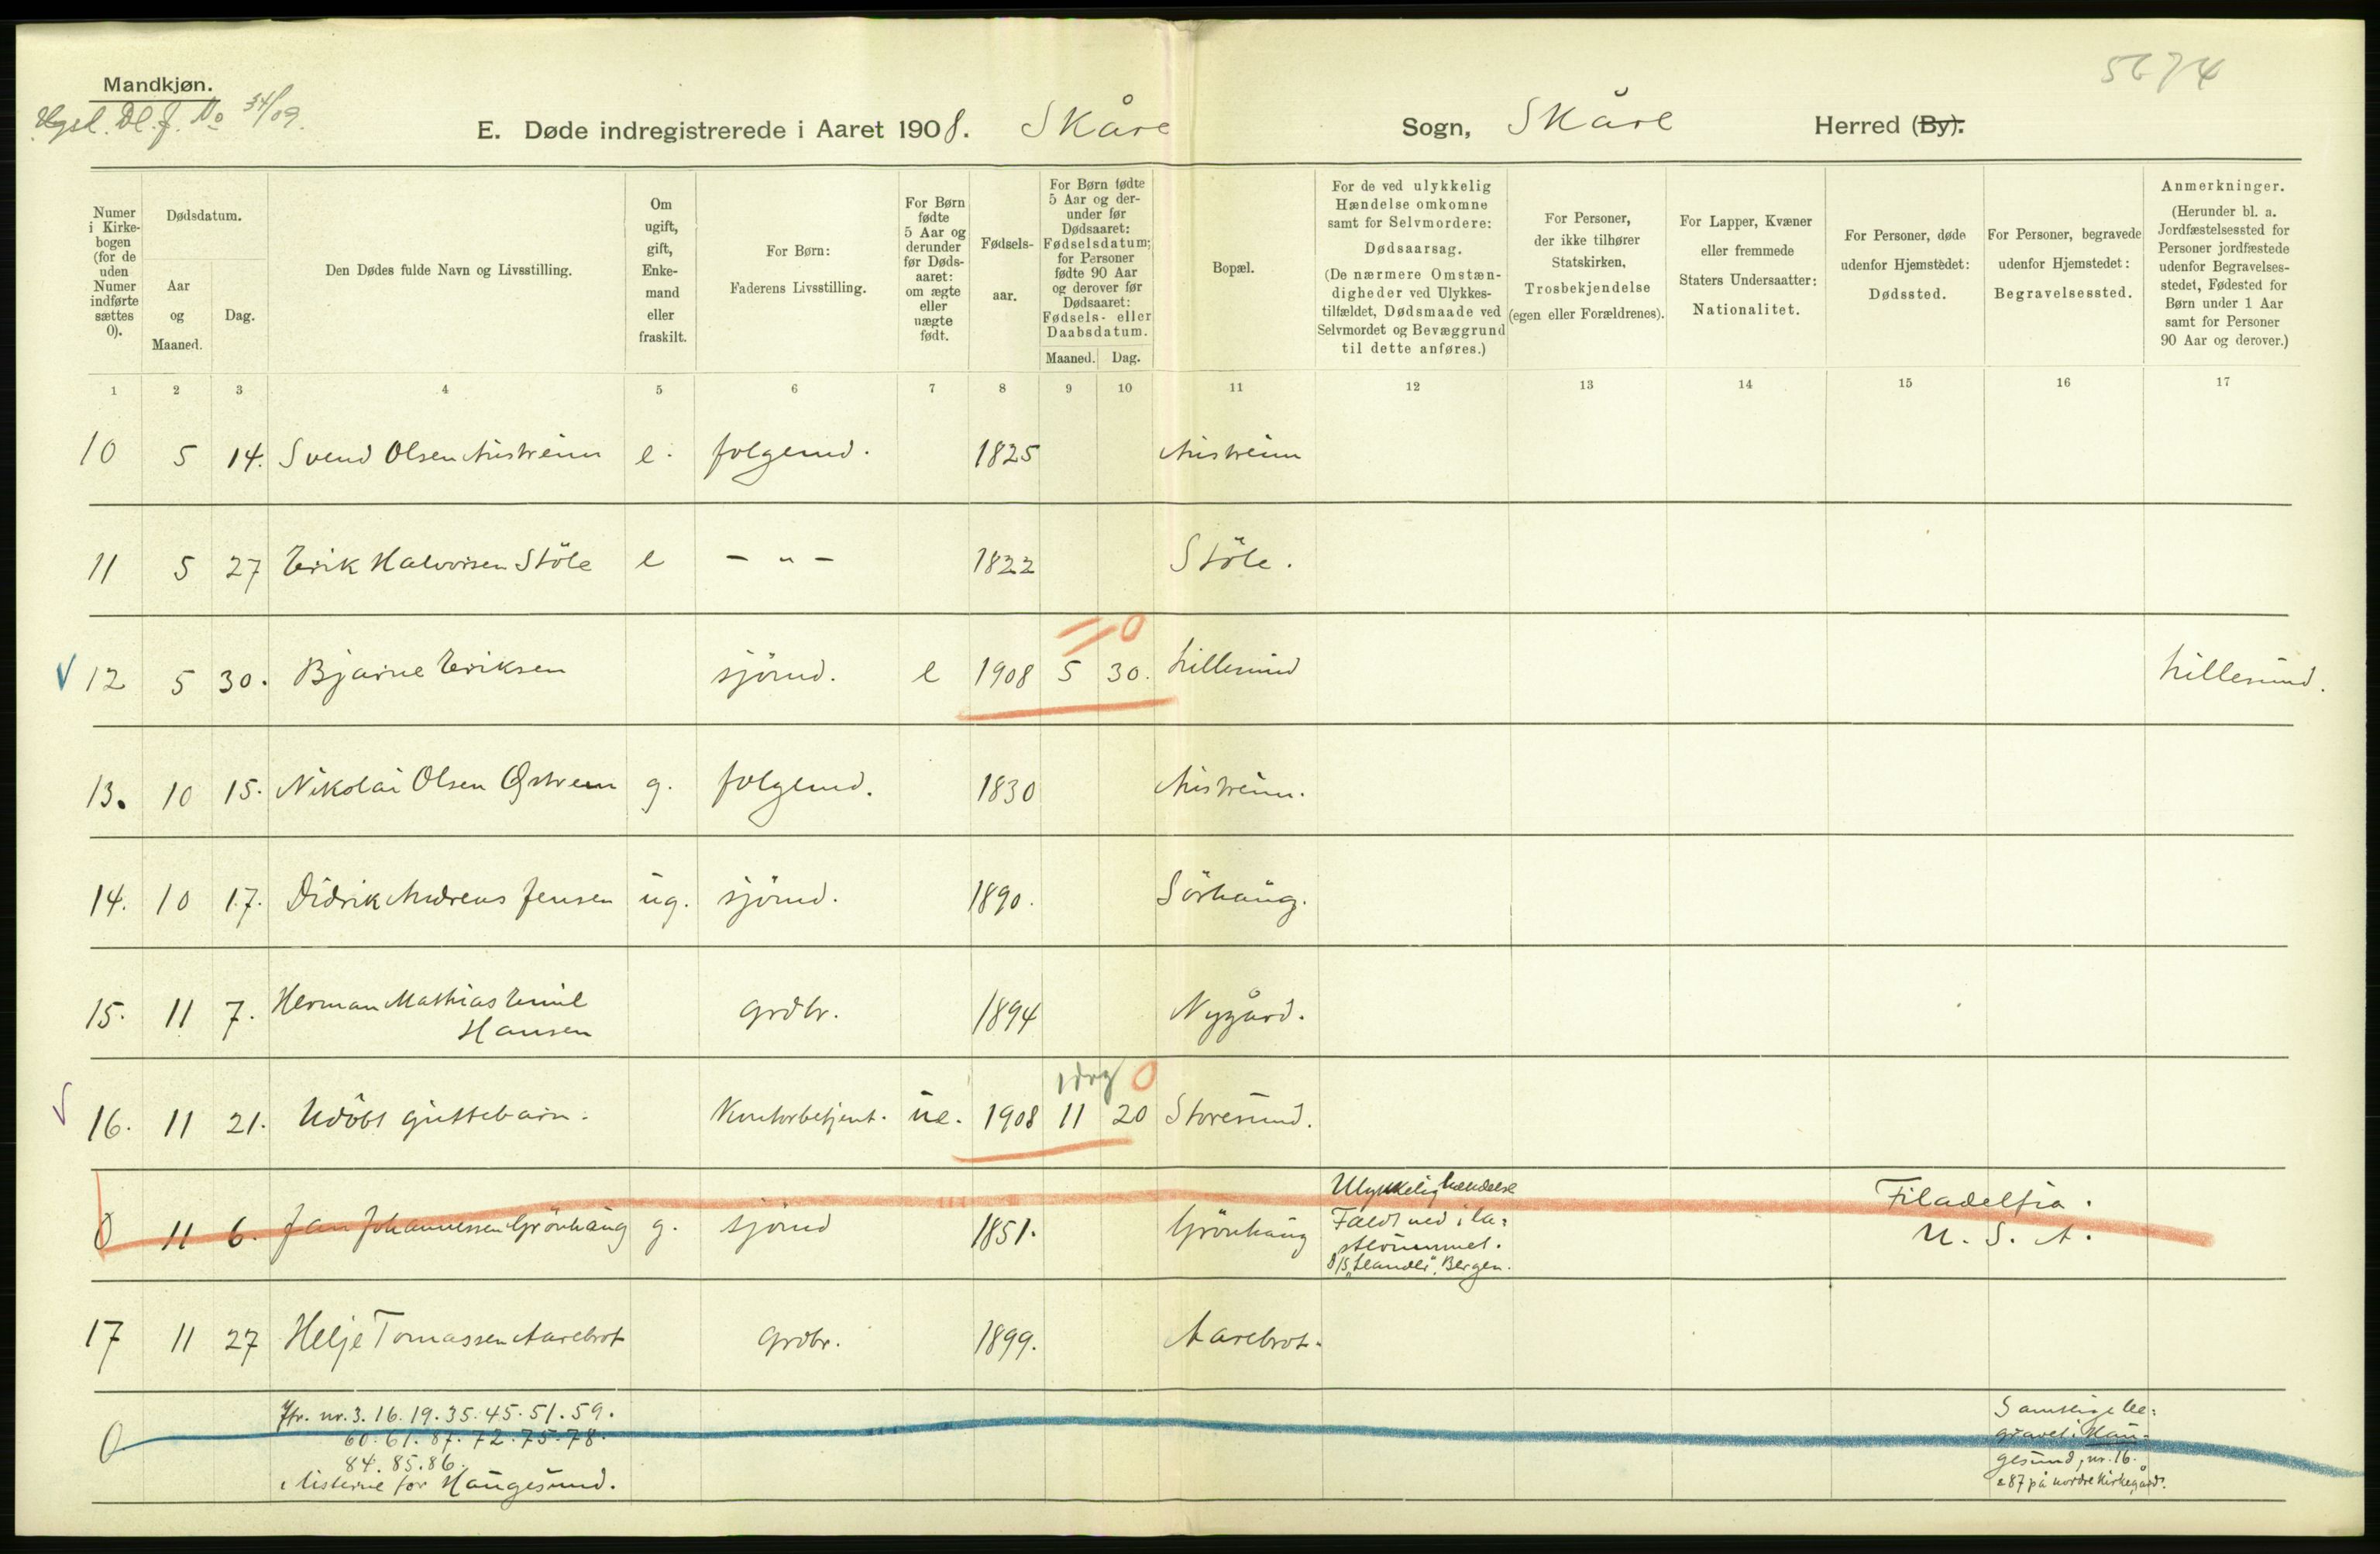 Mandkjøn.
34/09.
5674
E. Døde indregistrerede i Aaret 1908. Skåre Sogn, Skåre Herred (By).
Numer i Kirke-bogen (for de uden Numer indførte sættes 0).
Dødsdatum.
Aar og Maaned.
Dag.
Den Dødes fulde Navn og Livsstilling.
Om ugift, gift, Enke-mand eller fraskilt.
For Børn: Faderens Livsstilling.
For Børn fødte 5 Aar og derunder før Døds-aaret: om ægte eller uægte født.
Fødsels-aar.
For Børn fødte 5 Aar og der-under før Dødsaaret: Fødselsdatum; for Personer fødte 90 Aar og derover før Dødsaaret: Fødsels- eller Daabsdatum.
Maaned. Dag.
Bopæl.
For de ved ulykkelig Hændelse omkomne samt for Selvmordere: Dødsaarsag. (De nærmere Omstæn-digheder ved Ulykkes-tilfældet, Dødsmaade ved Selvmordet og Bevæggrund til dette anføres.)
For Personer, der ikke tilhører Statskirken, Trosbekjendelse (egen eller Forældrenes).
For Lapper, Kvæner eller fremmede Staters Undersaatter: Nationalitet.
For Personer, døde udenfor Hjemstedet: Dødssted.
For Personer, begravede udenfor Hjemstedet: Begravelsessted.
Anmerkninger. (Herunder bl. a. Jordfæstelsessted for Personer jordfæstede udenfor Begravelses-stedet, Fødested for Børn under 1 Aar samt for Personer 90 Aar og derover.)
1 2 3 4 5 6 7 8 9 10 11 12 13 14 15 16 17
10 5 14. Svend Olsen Austreim e. folgemd. 1825 Austreim
11 5 27 Erik Halvorsen Stöle e – „ – 1822 Stöle.
0
12 5 30. Bjarne Eriksen sjömd. e 1908 5 30. Lillesund Lillesund.
13. 10 15. Nikolai Olsen Østrem g. folgemd. 1830 Austreim.
14. 10 17. Didrik Andreas Jensen ug. sjömd. 1890. Sörhaug.
15. 11 7. Herman Mathias Emil
Hansen grdbr. 1894 Nygård.
1 dag 0
16. 11 21. Udöbt guttebarn. Kontorbetjent. ue. 1908 11 20 Storesund.
0 11 6. Jan Johannessen Grönhaug g. sjömd 1851. Grönhaug
Ulykkelig hændelse
Faldt ned i la=
sterummet.
Bergen.
Filadelfia.
U. S. A.
17 11 27 Helje Tomassen Aarebrot grdbr. 1899. Aarebrot.
0 Jfr. nr. 3. 16. 19. 35. 45. 51. 59.
60. 61. 87. 72. 75. 78.
84. 85. 86.
i listerne for Haugesund.
Samtlige be=
gravet i Hau=
gesund, nr. 16.
& 87 på nordre Kirkegård.